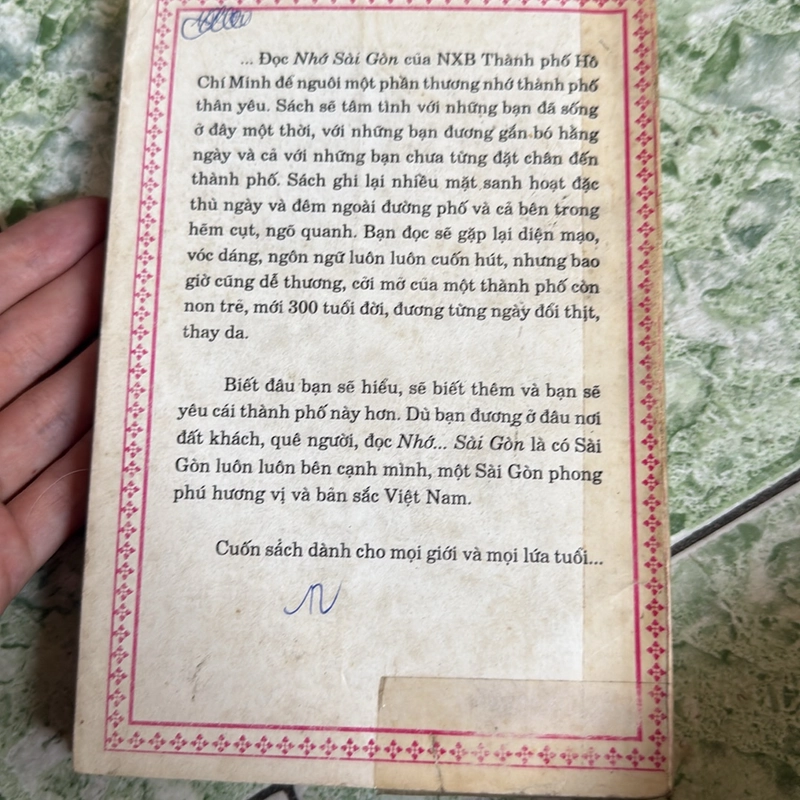 ... Đọc Nhớ Sài Gòn của NXB Thành phố Hồ
Chí Minh để nguôi một phần thương nhớ thành phố
thân yêu. Sách sẽ tâm tình với những bạn đã sống
ở đây một thời, với những bạn đương gắn bó hằng
ngày và cả với những bạn chưa từng đặt chân đến
thành phố. Sách ghi lại nhiều mặt sanh hoạt đặc
thù ngày và đêm ngoài đường phố và cả bên trong
hẽm cụt, ngõ quanh. Bạn đọc sẽ gặp lại diện mạo,
vóc dáng, ngôn ngữ luôn luôn cuốn hút, nhưng bao
giờ cũng dễ thương, cởi mở của một thành phố còn
non trẻ, mới 300 tuổi đời, đương từng ngày đổi thịt,
thay da.
Biết đâu bạn sẽ hiểu, sẽ biết thêm và bạn sẽ
yêu cái thành phố này hơn. Dù bạn đương ở đâu nơi
đất khách, quê người, đọc Nhớ... Sài Gòn là có Sài
Gòn luôn luôn bên cạnh mình, một Sài Gòn phong
phú hương vị và bản sắc Việt Nam.
Cuốn sách dành cho mọi giới và mọi lứa tuổi...